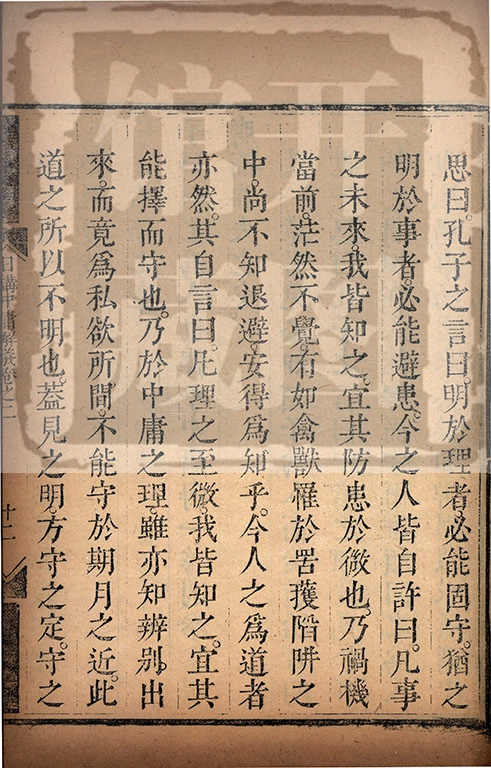 思曰孔子之言曰明於理者必能固守猶之
明於事者必能避患今之人皆自許曰凡事
之未來我皆知之宜其防患於微也乃禍機
當前茫然不覺有如禽獸罹於罟擭陷阱之
中尚不知退避安得爲知乎今人之爲道者
亦然其自言曰凡理之至微我皆知之宜其
能擇而守也乃於中庸之理雖亦知辨别出
來而竟爲私欲所間不能守於期月之近此
道之所以不明也蓋見之明方守之定守之
日講中庸解義卷之二
十二